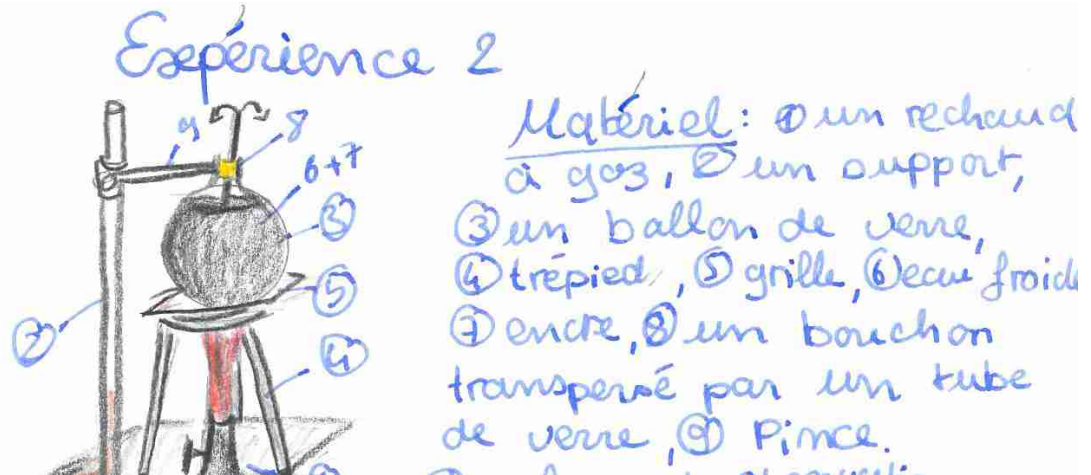 Expérience 2
Matériel: ① un rechaud
à gaz, ② un support,
③ un ballon de verre,
④ trépied, ⑤ grille, ⑥ eau froide
⑦ encre, ⑧ un bouchon
transpersé par un tube
de verre, ⑨ Pince.
9
8
6+7
③
⑤
②
④